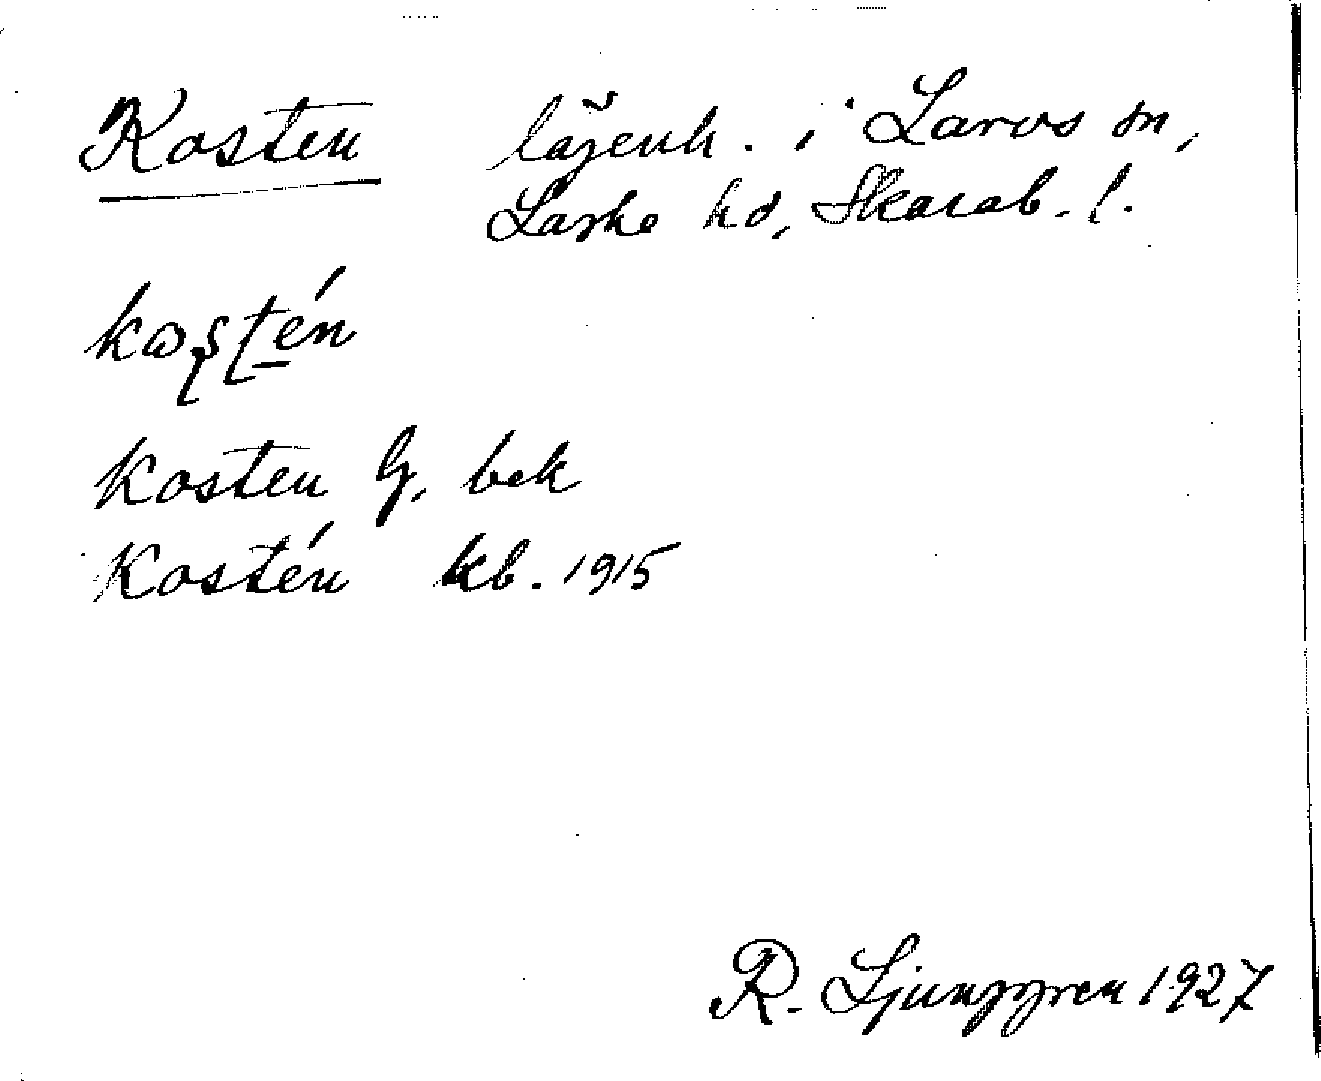 Kosten lägenh. i Larvs sn,
Laske hd, Skarab. l.
kosten
Kosten G. bek
Kostén kb. 1915
R. Ljunggren 1927